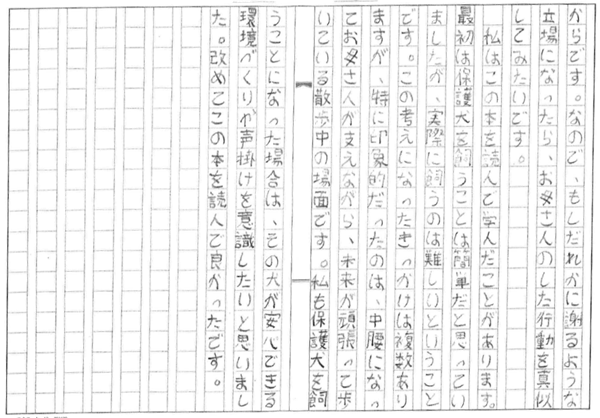 からです。なので、もしだれかに謝るような
立場になったら、お母さんのした行動を真似
してみたいです。
私はこの本を読んで学んだことがあります。
最初は保護犬を飼うことは簡単だと思ってい
ましたが、実際に飼うのは難しいということ
です。この考えになったきっかけは複数あり
ますが、特に印象的だったのは、中腰になっ
てお母さんが支えながら、未来が頑張って歩
いている散歩中の場面です。私も保護犬を飼
うことになった場合は、その犬が安心できる
環境づくりや声掛けを意識したいと思いまし
た。改めてこの本を読んで良かったです。